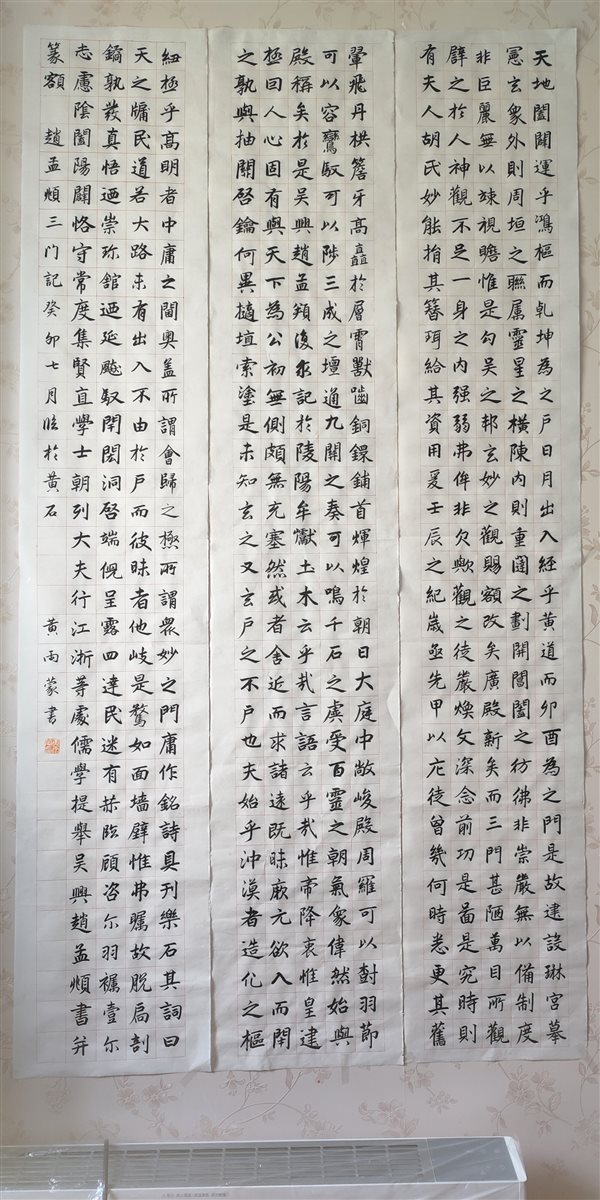 天地闔闢運乎鴻樞而乹坤為之戶日月出入經乎黃道而卯酉為之門是故建設琳宮摹
憲玄象外則周垣之聮屬靈星之橫陳內則重闥之劃開閶闔之彷彿非崇嚴無以備制度
非巨麗無以竦視瞻惟是勾吳之邦玄妙之觀賜額改矣廣殿新矣而三門甚陋萬目所觀
辟之於人神觀不足一身之內强弱弗侔非欠歟觀之徒嚴煥文深念前功是啚是究時則
有夫人胡氏妙能捐其簪珥給其資用爰壬辰之紀歲亟先甲以庀徒曾幾何時悉更其舊
翬飛丹栱簷牙高矗於層霄獸嚙銅鐶鋪首輝煌於朝日大庭中敞峻殿周羅可以樹羽節
可以容鸞馭可以陟三成之壇通九關之奏可以鳴千石之虡受百靈之朝氣象偉然始與
殿稱矣於是吳興趙孟頫復求記於陵陽牟巘土木云乎哉言語云乎哉惟帝降衷惟皇建
極曰人心固有與天下為公初無側頗無充塞然或者舍近而求諸遠既昧厥元欲入而閉
之孰與抽關啓鑰何異擿埴索塗是未知玄之又玄戶之不戶也夫始乎沖漠者造化之樞
紐極乎高明者中庸之閫奧盖所謂會歸之極所謂衆妙之門庸作銘詩具刊樂石其詞曰
天之牖民道若大路未有出入不由於戶而彼昧者他岐是騖如面墻壁惟弗矚故脫扃剖
鐍孰發真悟迺崇珎舘迺延飈馭閈閎洞啓端倪呈露四達民迷有赫臨顧咨尔羽襴壹尔
志慮陰闔陽闢恪守常度集賢直學士朝列大夫行江浙等處儒學提舉吳興趙孟頫書并
篆額 趙孟頫三门記癸卯七月臨於黃石 黃雨蒙書